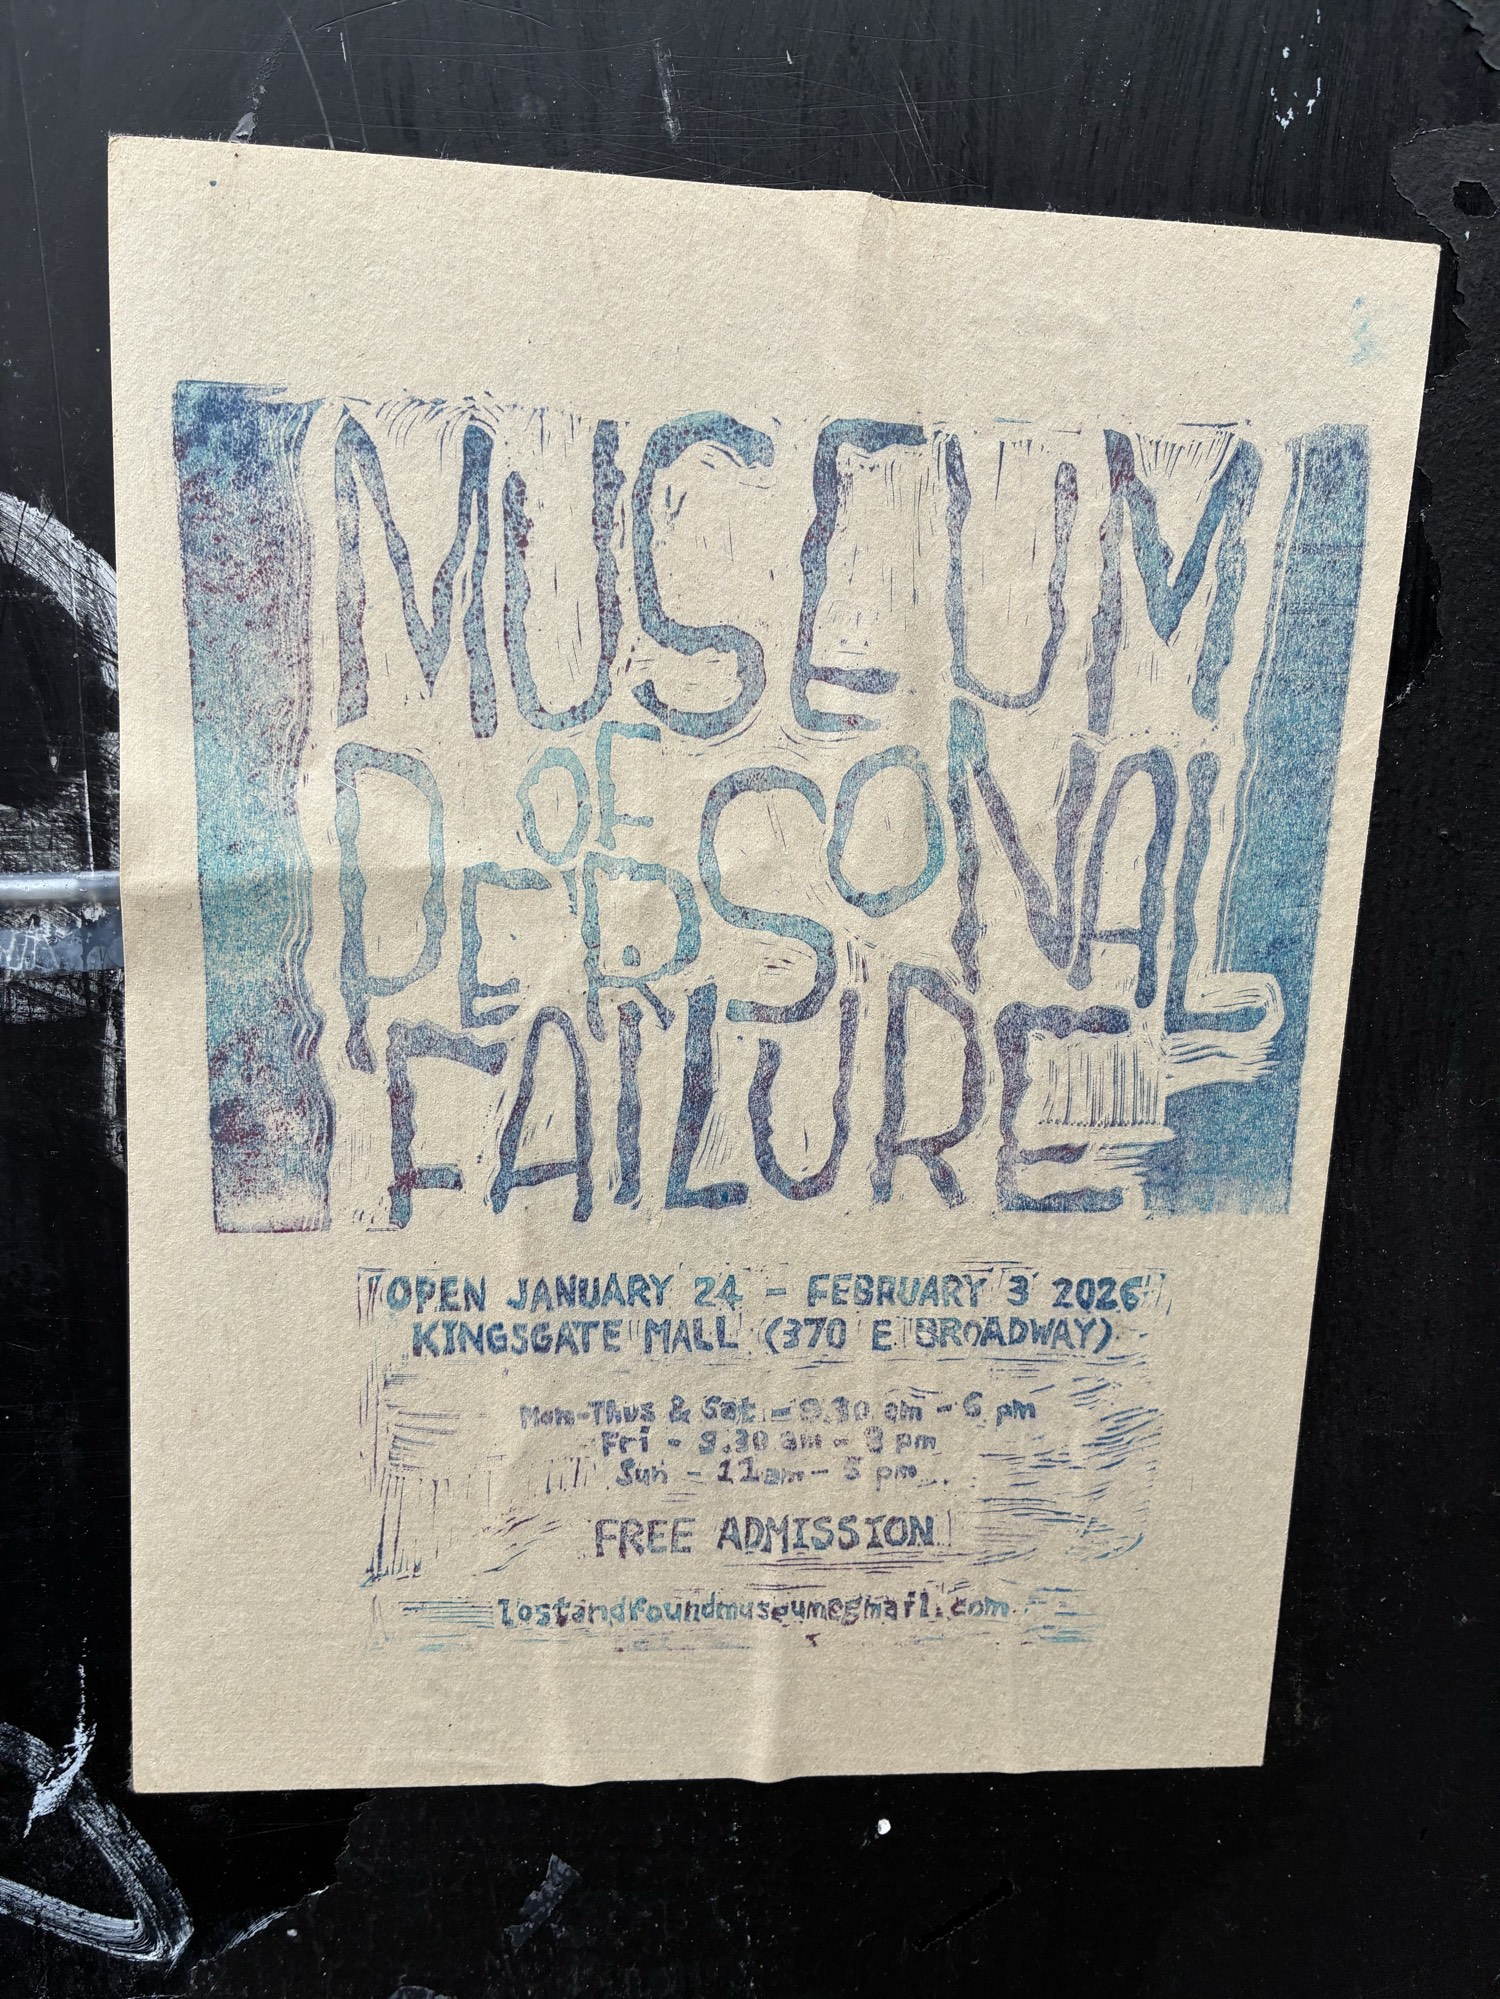 MUSEUM
OF
PERSONAL
FAILURE
OPEN JANUARY 24 - FEBRUARY 3 2026
KINGSGATE MALL (370 E BROADWAY)
Mon-Thus & Sat - 9.30 am - 6 pm
Fri - 9.30 am - 8 pm
Sun - 11am - 5 pm
FREE ADMISSION
lostandfoundmuseum@gmail.com